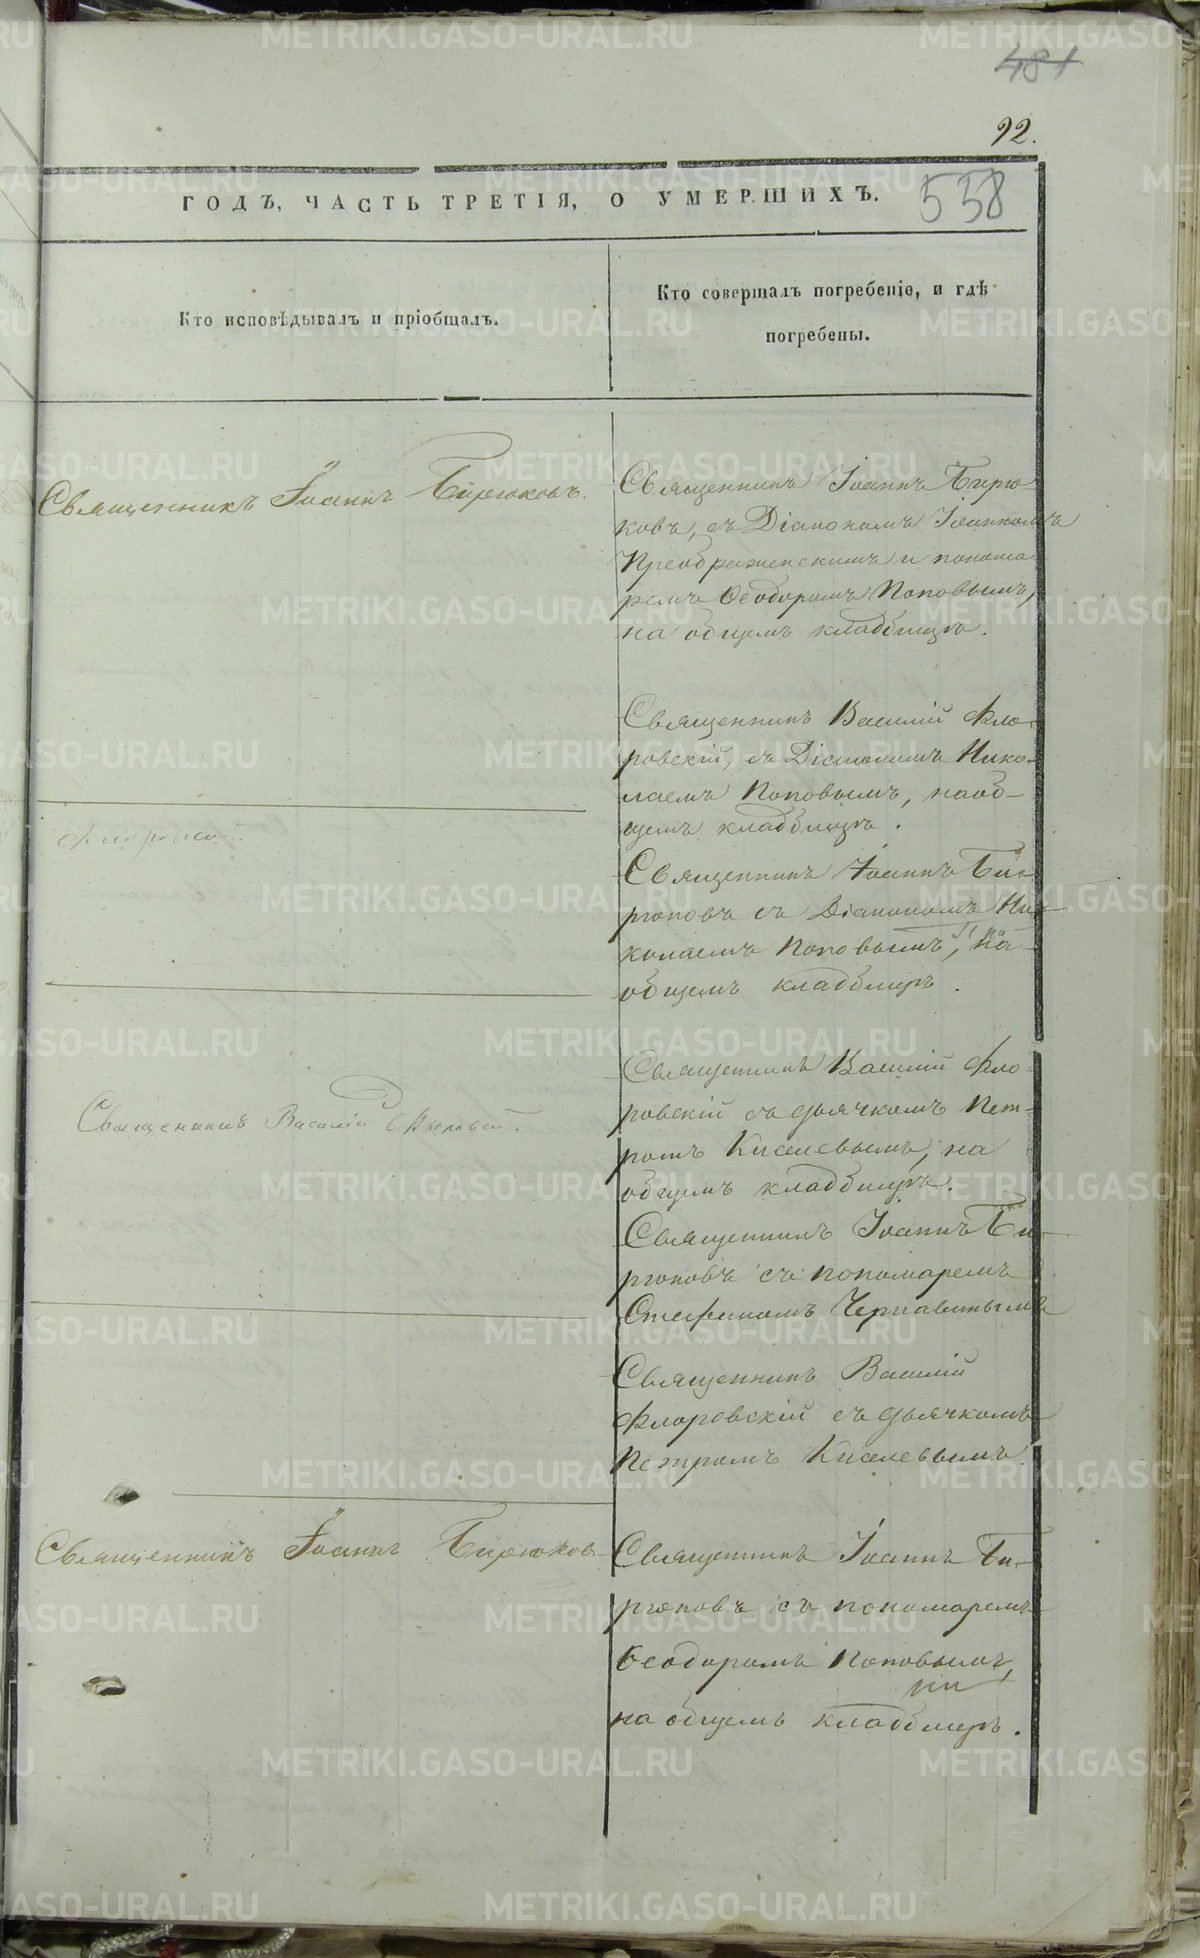 481
92.
538
ГОДЪ, ЧАСТЬ ТРЕТІЯ, О УМЕРШИХЪ.
Кто исповѣдывалъ и пріобщалъ.
Кто совершалъ погребеніе, и гдѣ
погребены.
Священникъ Іоаннъ Бирюковъ.
Священникъ Іоаннъ Бирю-
ковъ, съ Діакономъ Іоанномъ
Преображенскимъ и понома
ремъ Ѳеодоромъ Поповымъ,
на общемъ кладбищѣ.
Священникъ Василій Фло-
ровскій, съ Діакономъ Нико-
лаемъ Поповымъ, на об-
щемъ кладбищѣ.
Священникъ Іоаннъ Би-
рюковъ съ Діакономъ Ни-
колаемъ Поповымъ, на
общемъ кладбищѣ.
Священникъ Василій
Священникъ Василій Фло-
ровскій съ дьячкомъ Пет-
ромъ Киселевымъ, на
общемъ кладбищѣ.
Священникъ Іоаннъ Би-
рюковъ съ пономаремъ
Стефаномъ Чернавинымъ
Священникъ Василій
Флоровскій съ дьячкомъ
Петромъ Киселевымъ.
Священникъ Іоаннъ Бирюковъ
Священникъ Іоаннъ Би-
рюковъ съ пономаремъ
Ѳеодоромъ Поповымъ,
на общемъ кладбищѣ.
METRIKI.GASO-URAL.RU